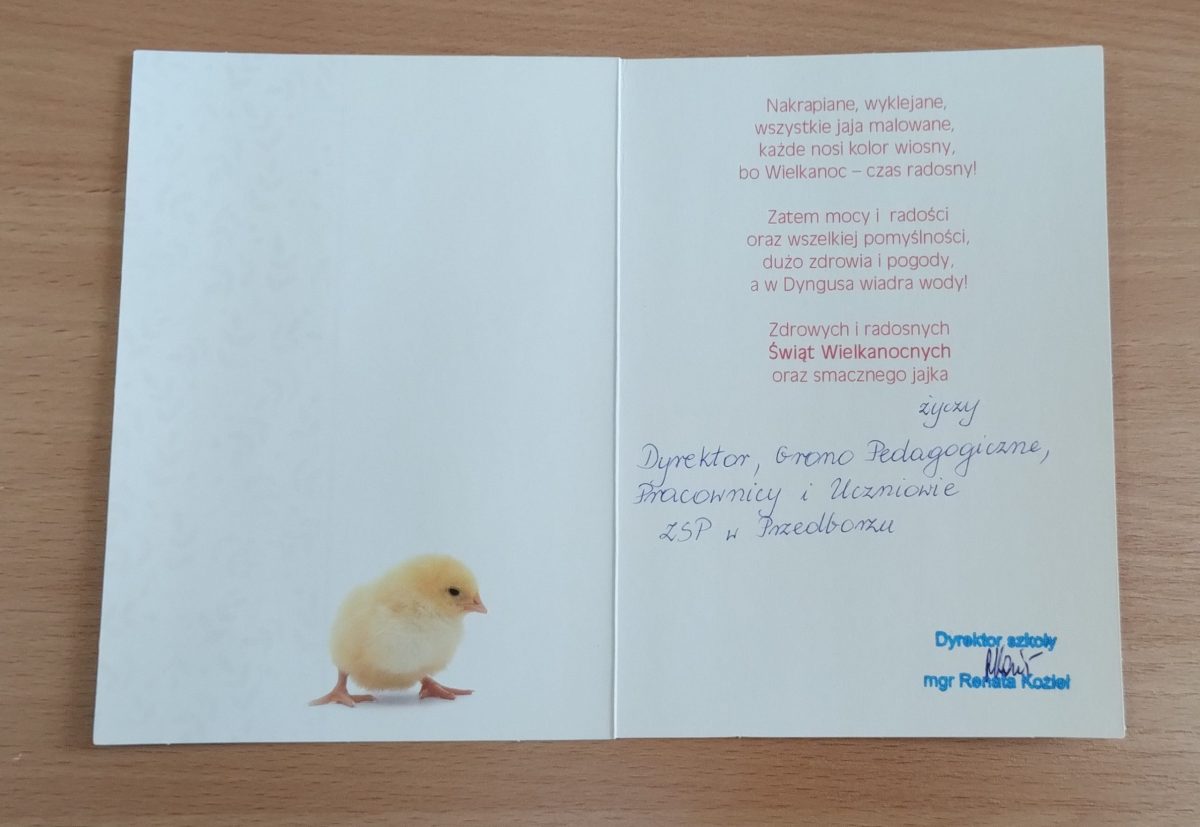 Nakrapiane, wyklejane,
wszystkie jaja malowane,
każde nosi kolor wiosny,
bo Wielkanoc – czas radosny!
Zatem mocy i radości
oraz wszelkiej pomyślności,
dużo zdrowia i pogody,
a w Dyngusa wiadra wody!
Zdrowych i radosnych
Świąt Wielkanocnych
oraz smacznego jajka
życzy
Dyrektor, Grono Pedagogiczne,
Pracownicy i Uczniowie
ZSP w Przedborzu
Dyrektor szkoły
mgr Renata Kozieł